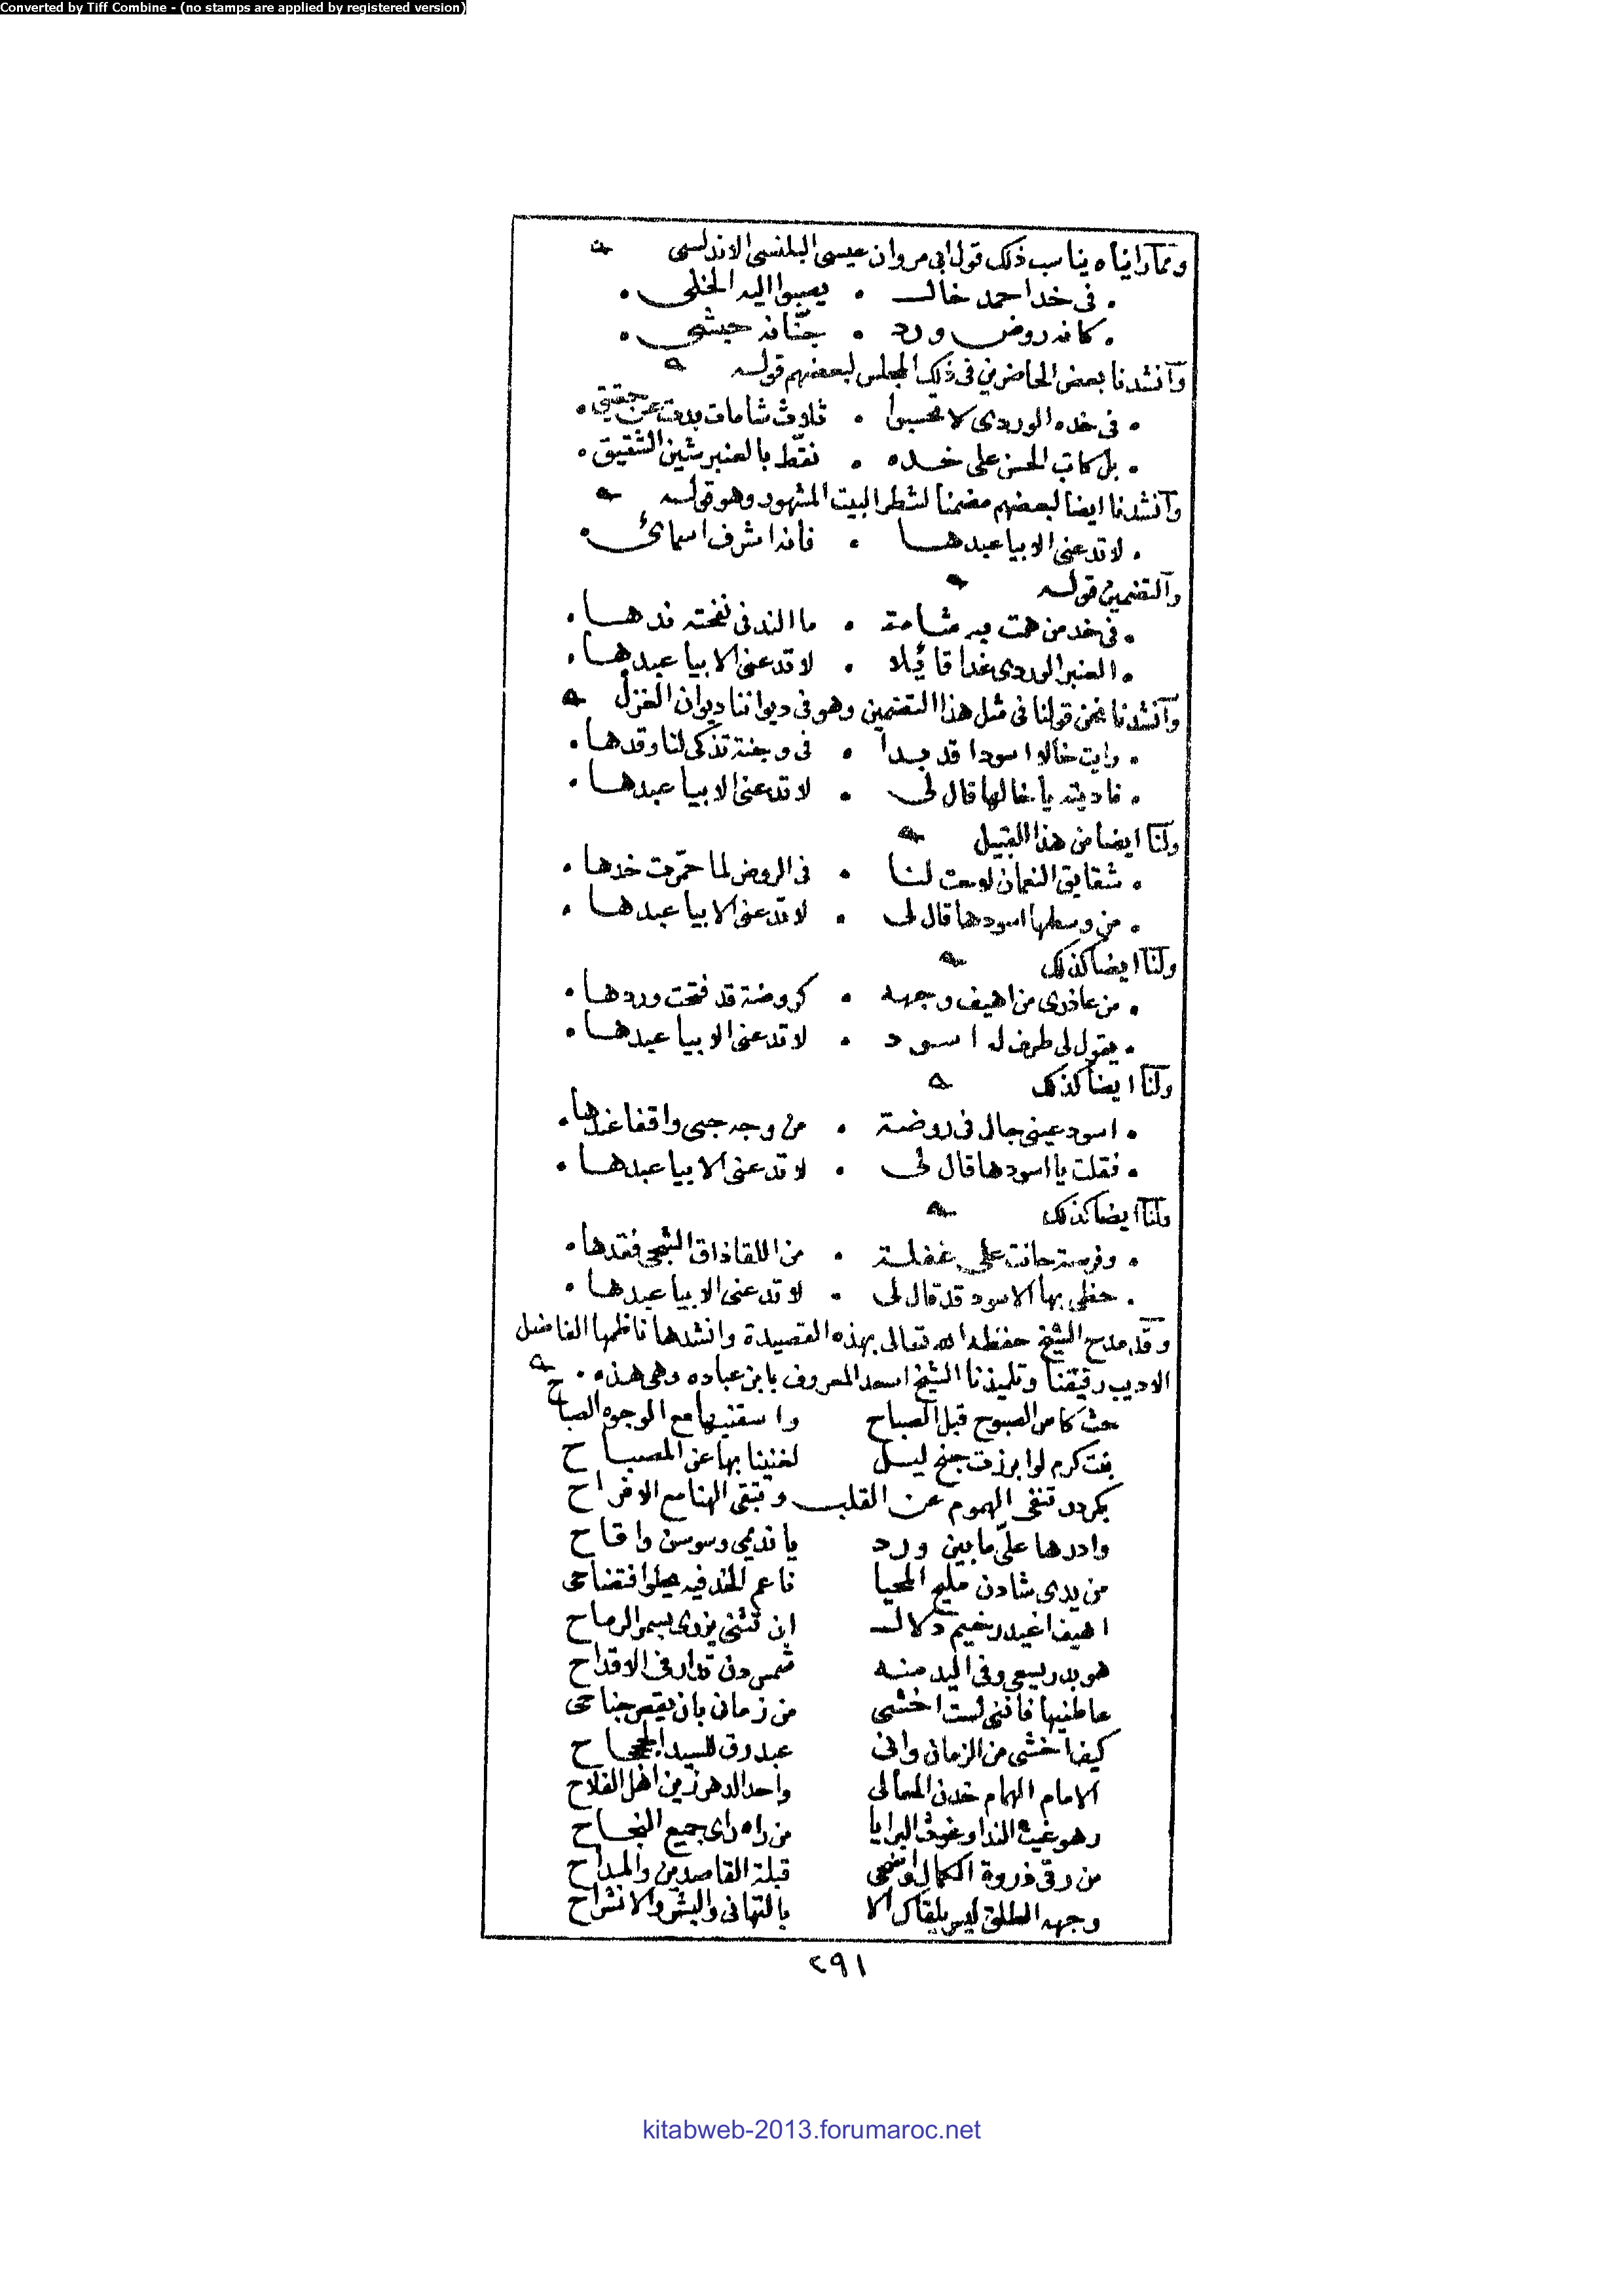 Converted by Tiff Combine - (no stamps are applied by registered version)
ومما رايناه يناسب ذلك قول ابى مروان عيسى البلنسى الاندلسى
في خد احمد خال • يصبوا اليه الخلى •
كانه روض ورد • جنّانه حبشى •
وانشدنا بعض الحاضرين في ذلك المجلس لبعضهم قوله
• في خده الوردى لا تحسبوا • ثلاث شامات بدت عن حقيق •
• بل كاتب الحسن على خده • نقّط بالعنبر شين الشقيق •
وانشدنا ايضا لبعضهم مضمنا لشطر البيت المشهور وهو قوله
• لا تدعنى الا بيا عبدها • فانه اشرف اسمائى •
والتضمين قوله
• في خد من همت به شامة • ما الند في نفحته ندها •
• العنبر الوردى غدا قائلا • لا تدعنى الا بيا عبدها •
وانشدنا نحن قولنا في مثل هذا التضمين وهو في ديواننا ديوان الغزل
• رايت خالا اسودا قد بدا • في وجنة تذكى لنا وقدها •
• ناديته يا خالها قال لى • لا تدعنى الا بيا عبدها •
ولنا ايضا من هذا القبيل
• شقايق النعمان لاحت لنا • في الروض لما حمّرت خدها •
• من وسطها اسودها قال لى • لا تدعنى الا بيا عبدها •
ولنا ايضا كذلك
• من عاذرى من اهيف وجهه • كروضة قد فتحت وردها •
• يقول لى طرف له اسود • لا تدعنى الا بيا عبدها •
ولنا ايضا كذلك
• اسود عينى جال في روضة • من وجه حبى واقفا عندها •
• فقلت يا اسودها قال لى • لا تدعنى الا بيا عبدها •
ولنا ايضا كذلك
• وفرصة حانت على غفلة • من اللقا ذاق الشجى فقدها •
• حظى بها الاسود قد قال لى • لا تدعنى الا بيا عبدها •
وقد مدح الشيخ حفظه الله تعالى بهذه القصيدة وانشدها ناظمها الفاضل
الاديب رفيقنا وتلميذنا الشيخ اسعد المعروف بابن عباده وهي هذه •
حث كاس الصبوح قبل الصباح واسقنيها مع الوجوه الصباح
بنت كرم لو ابرزت جنح ليل لغنينا بها عن المصباح
بكر دن تنفى الهموم عن القلب وتبقى الهنا مع الافراح
وادرها علىّ ما بين ورد يا نديمى وسوسن واقاح
من يدى شادن مليح المحيا ناعم الخد فيه يحلو افتضاحى
اهيف اغيد رخيم دلال ان تثنى يزرى بسمر الرماح
هو بدر يسعى وفى اليد منه شمس دن تدار فى الاقداح
عاطنيها فاننى لست اخشى من زمانى بان يقص جناحى
كيف اخشى من الزمان وانى عبد رق للسيد الجحجاح
الامام الهمام خدن المعالى واحد الدهر زين اهل الفلاح
وهو غيث الندا وغوث البرايا من راه راى جميع النجاح
من رقى ذروة الكمال واضحى قبلة القاصدين والمداح
وجهه الطلق ليس يلقاك الا بالتهانى والبشر والانشراح
٢٩١
kitabweb-2013.forumaroc.net